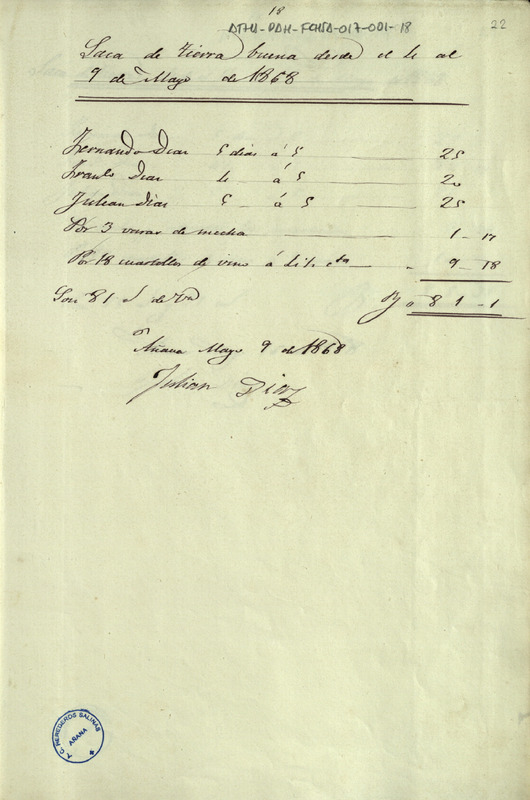 18
ATHA-DAH-FCHSA-017-001-18
22
Saca de tierra buena desde el 4 al
9 de Mayo de 1868
Fernando Diaz 5 dias á 5 25
Franco Diaz 4 á 5 20
Julian Dias 5 á 5 25
Por 3 varas de mecha 1-17
Por 18 cuartillos de vino á 9-18
Son 81 de Von 81-1
Añana Mayo 9 de 1868
Julian Diaz
A. C. HEREDEROS SALINAS
AÑANA